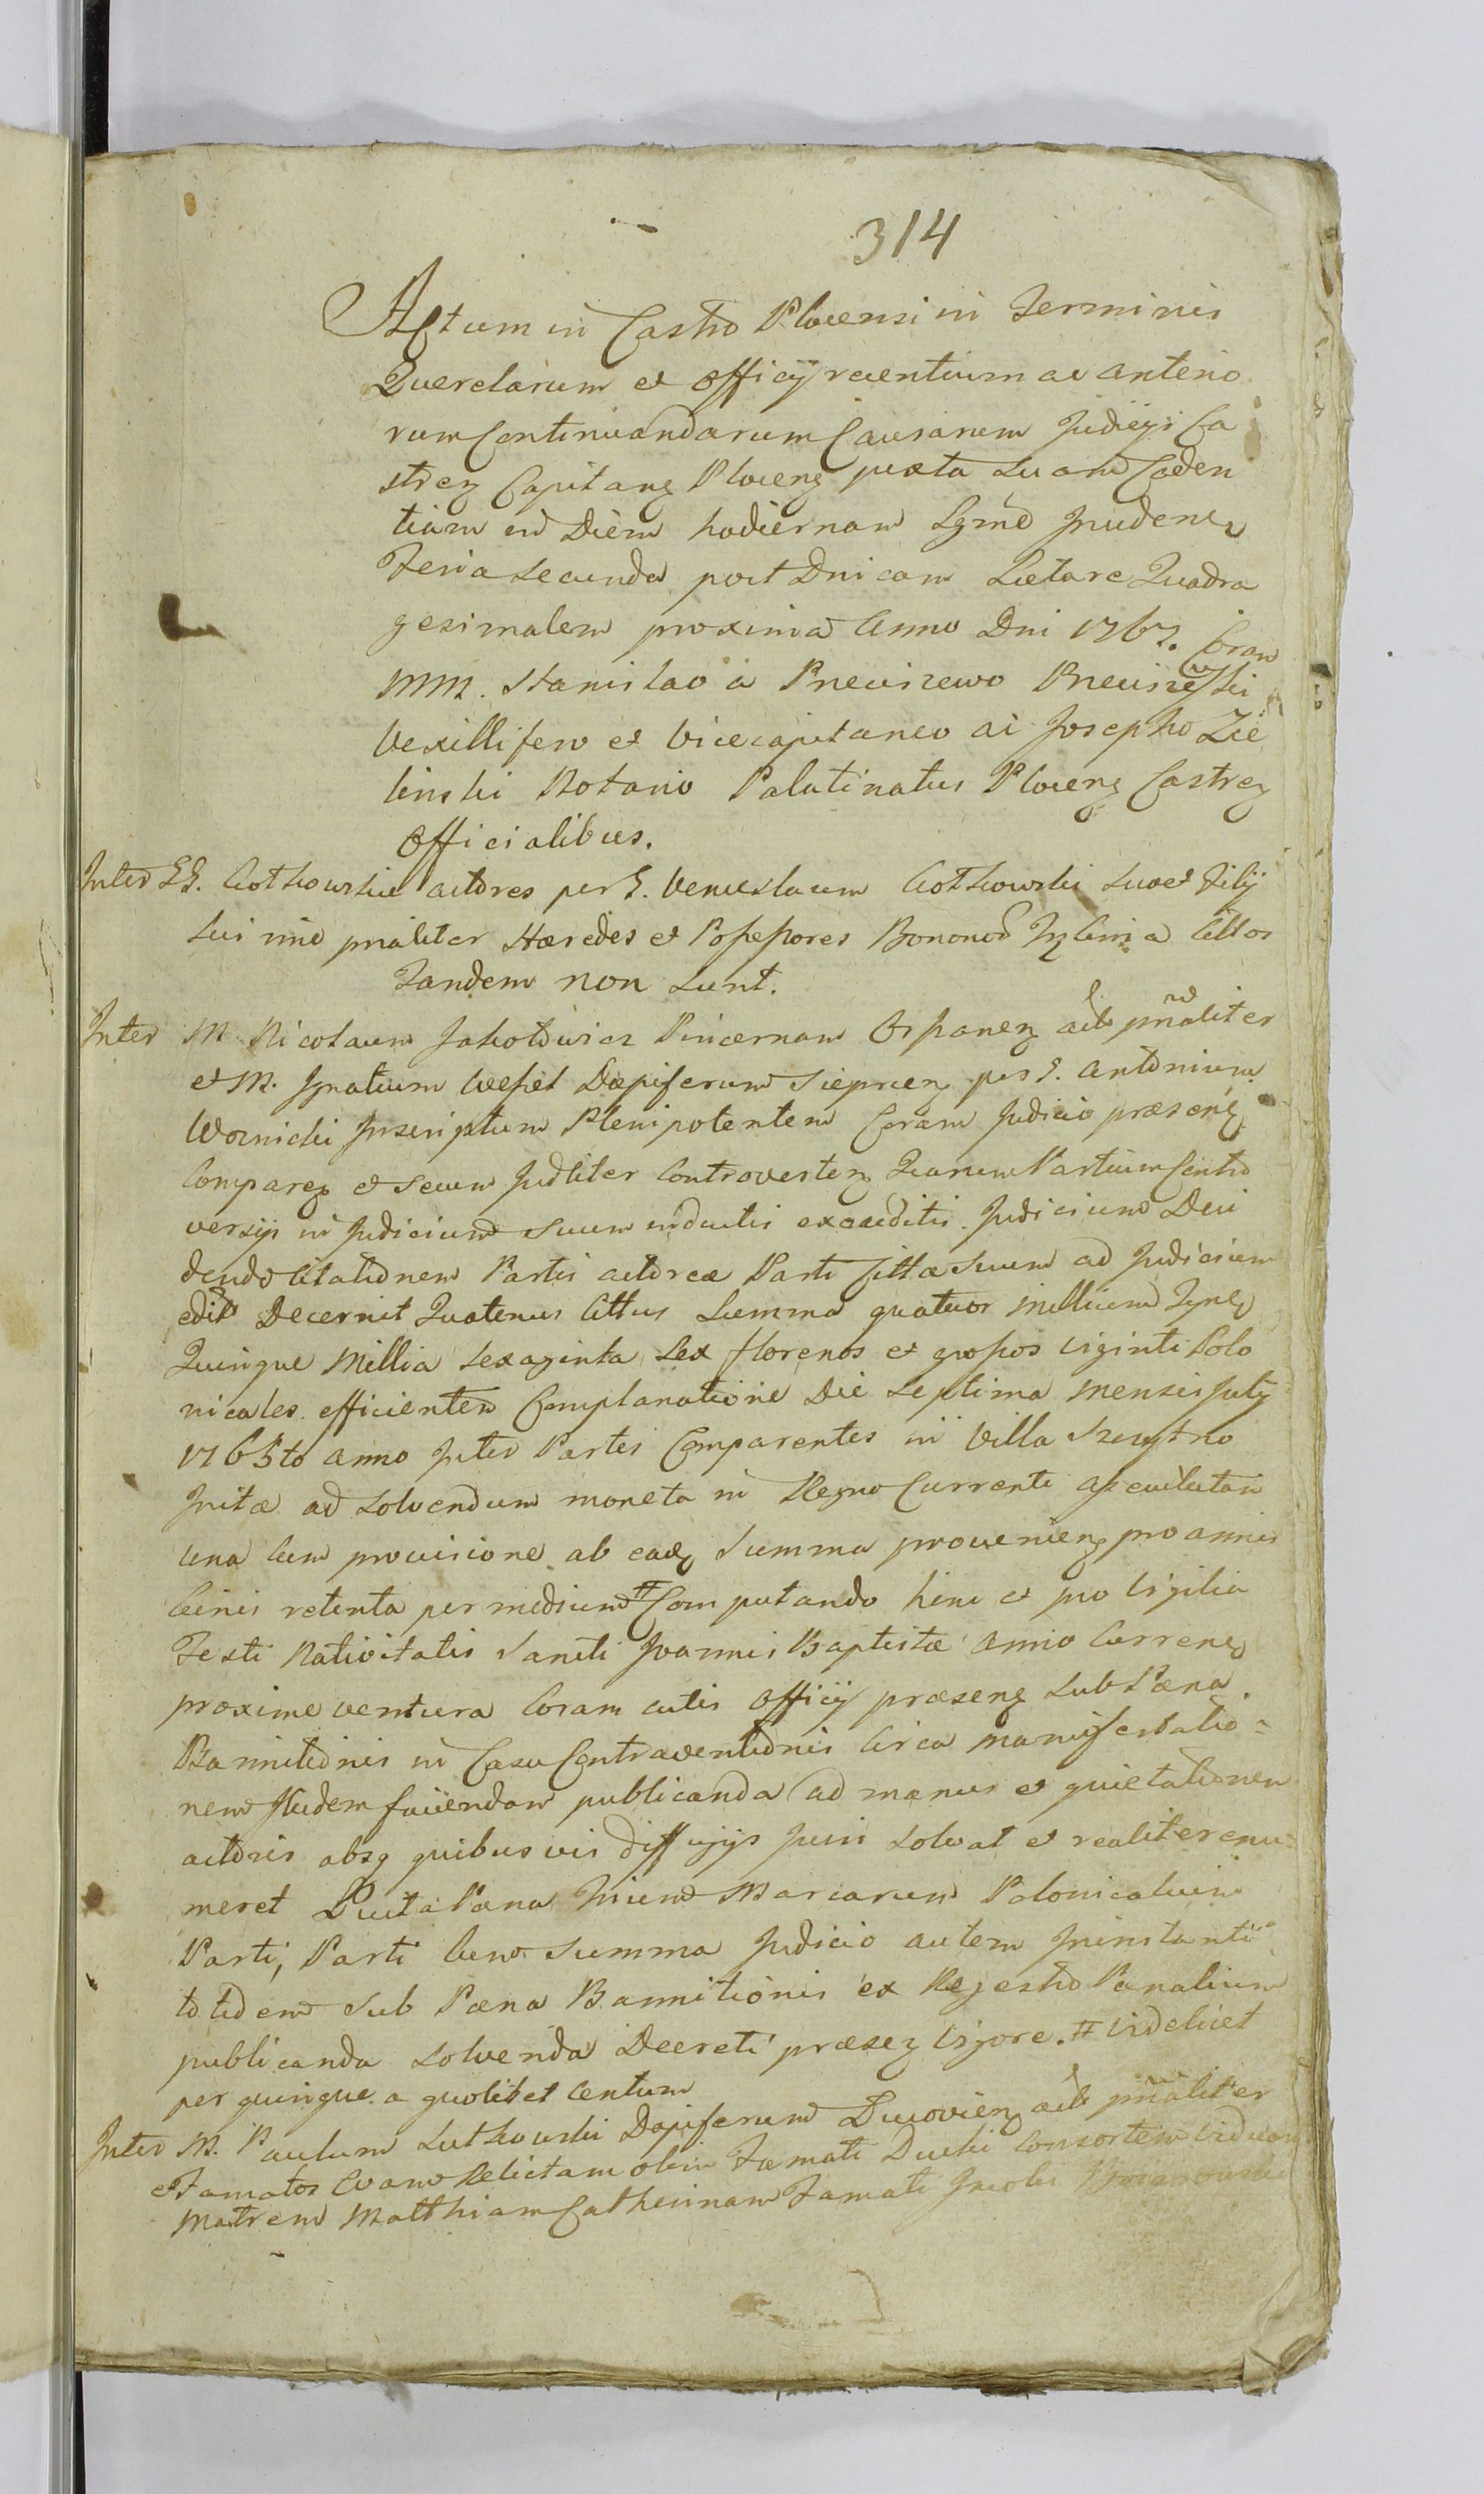 314
Actum in Castro Plocensi in Terminis
Querelarum et Officij recentium ac anterio
rum Continuandarum Causarum Judicijs Ca
streŋ Capitaneŋ Ploceŋ juxta suam Caden
tiam in Diem hodiernam
Feria secunda post Dnicam Lætare Quadra
gesimalem proxima Anno Dni 1767. Coram
MM. Stanislao a
Vexillifero et Vicecapitaneo ac Josepho Zie
linski Notario Palatinatus Ploceŋ Castreŋ
Officialibus.
Inter GG. actores per G. Venceslaum suo et Filij
sui nne pnaliter Hæredes et Possessores Bonorum
Tandem non sunt.
Inter M. Nicolaum Pincernam act pnaliter
et M. Ignatium Wessel Dapiferum per G. Antonium
Woznicki Inscriptum Plenipotentem Coram Judicio præseŋ
Compareŋ et secum Judliter Controverteŋ Quarum Partium Contro
versijs in Judicium suum inductis exauditis. Judicium
dendo Citationem Partis actoreæ Parti Cittæ suum ad Judicium
Decernit Quatenus Cittus Summa quatuor millium
Quinque Millia Sexaginta Sex florenos et grossos viginti Polo
nicales efficientem Complanatione Die Septima mensis July
1765to anno Inter Partes Comparentes in Villa
Initæ ad solvendum moneta in Regno Currenti assecuratam
una cum provisione ab eadŋ Summa provenieŋ pro annis
binis retenta per medium # Computando hinc et pro Vigilia
Festi Nativitatis Sancti Joannis Baptistæ anno Curreneŋ
proxime ventura Coram actis Officij præseŋ sub Pæna
Bannitionis in Casu Contraventionis Circa manifestatio=
nem Ibidem faciendam publicanda ad manus et quietationem
actoris absq quibusvis diffugijs Juris solvat et realiter enu=
meret Lucta Pæna trium Marcarum Polonicalium
Parti, Parti cum Summa Judicio autem Ininstanti
totidem sub Pæna Bannitionis ex Regestro Pænalium
publicanda solvenda Decreti præseŋ Vigore. # Videlicet
per quinque a quolibet Centum
Inter M. Paulum Sutkowski Dapiferum act pnaliter
et Famatos Evam Relictam olim Famati Consortem Viduam
Matrem Matthiam Catherinam Famati Jacobi